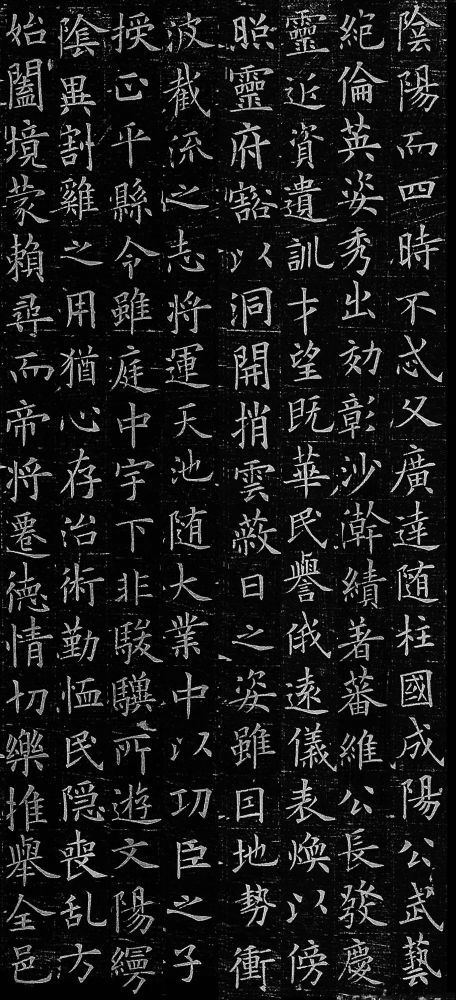 陰陽而四時不忒父廣達随柱國成陽公武藝
絶倫英姿秀出効彰沙漸績著蕃維公長發慶
靈近資遺訓才望既華民譽俄遠儀表煥以傍
照靈府豁以洞開捎雲蔽日之姿雖因地勢衝
波截流之志將運天池随大業中以功臣之子
授正平縣令雖庭中宇下非駿驥所遊文陽
陰異割雞之用猶心存治術勤恤民隠喪乱方
始闔境蒙賴尋而帝將遷德情切樂推舉全邑